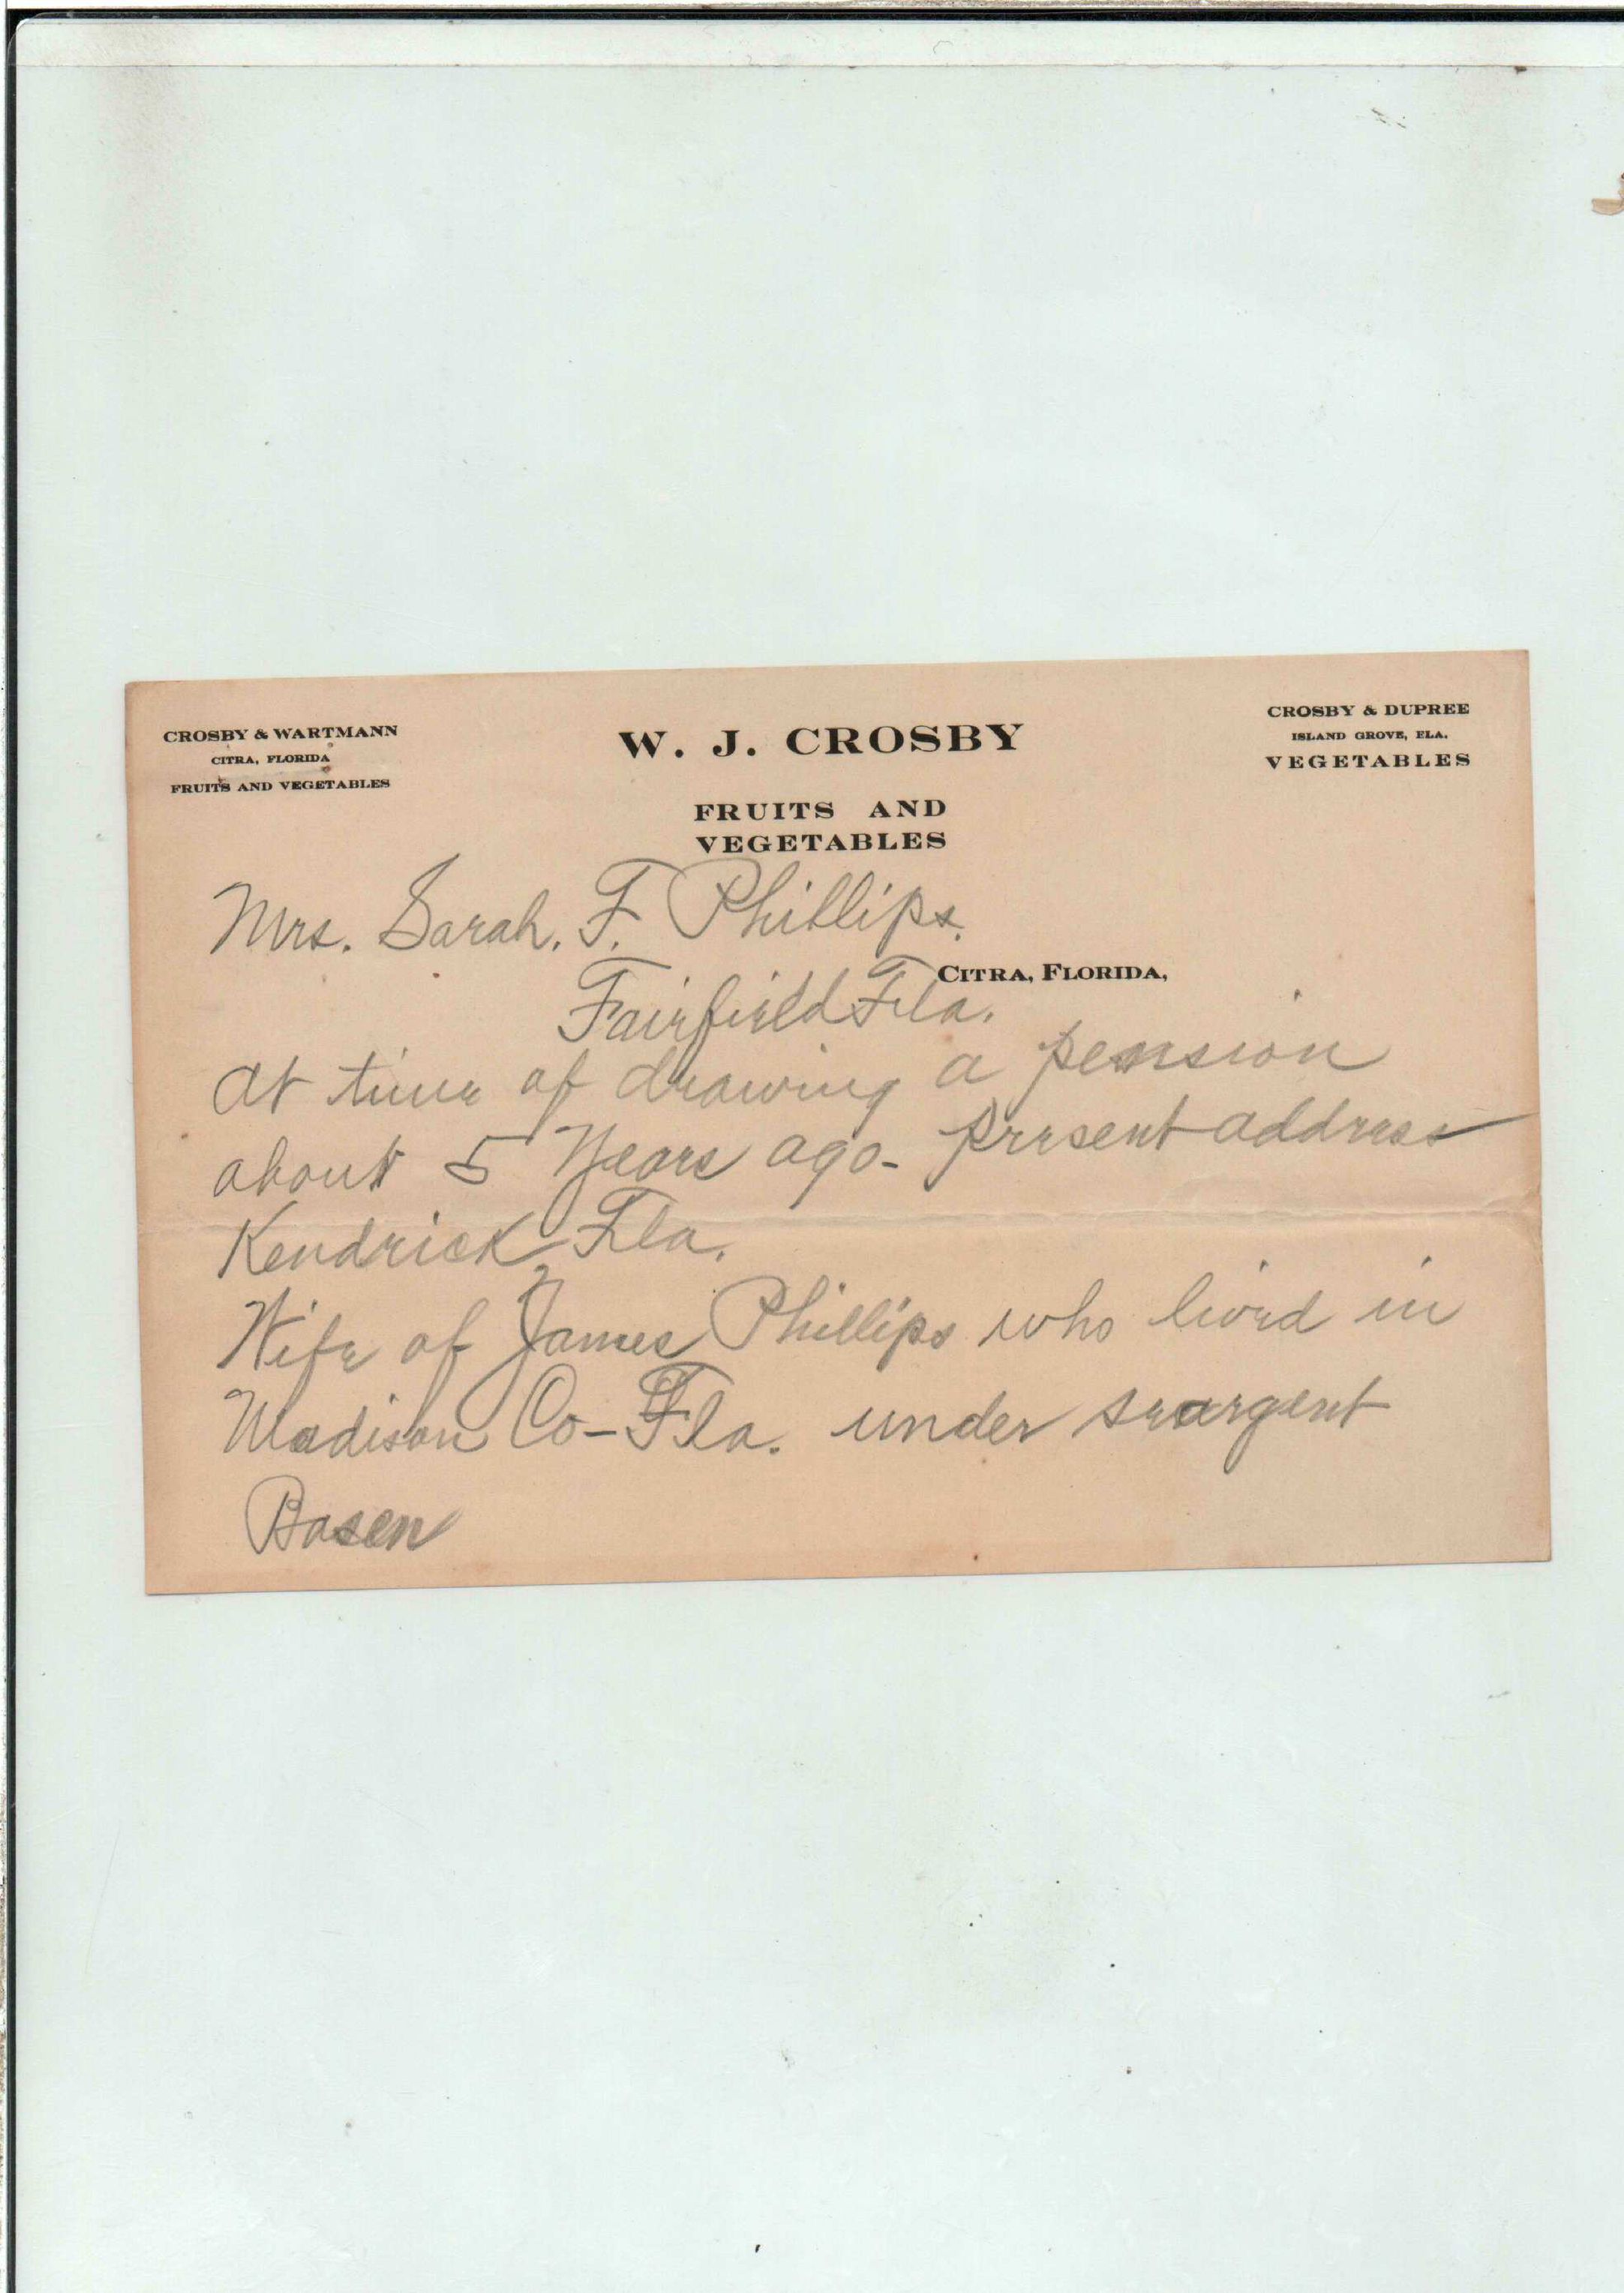 CROSBY & WARTMANN
CITRA, FLORIDA
FRUITS AND VEGETABLES
W. J. CROSBY
FRUITS AND
VEGETABLES
CROSBY & DUPREE
ISLAND GROVE, FLA.
VEGETABLES
Mrs. Sarah. F. Phillips.
CITRA, FLORIDA,
Fairfield Fla.
at time of drawing a pension
about 5 Years ago - present address
Kendrick, Fla.
Wife of James Phillips who lived in
Madison Co - Fla. under seargent
Basen